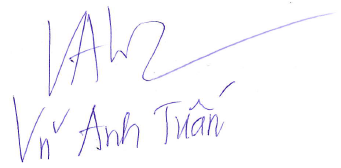 Vũ Anh Tuấn